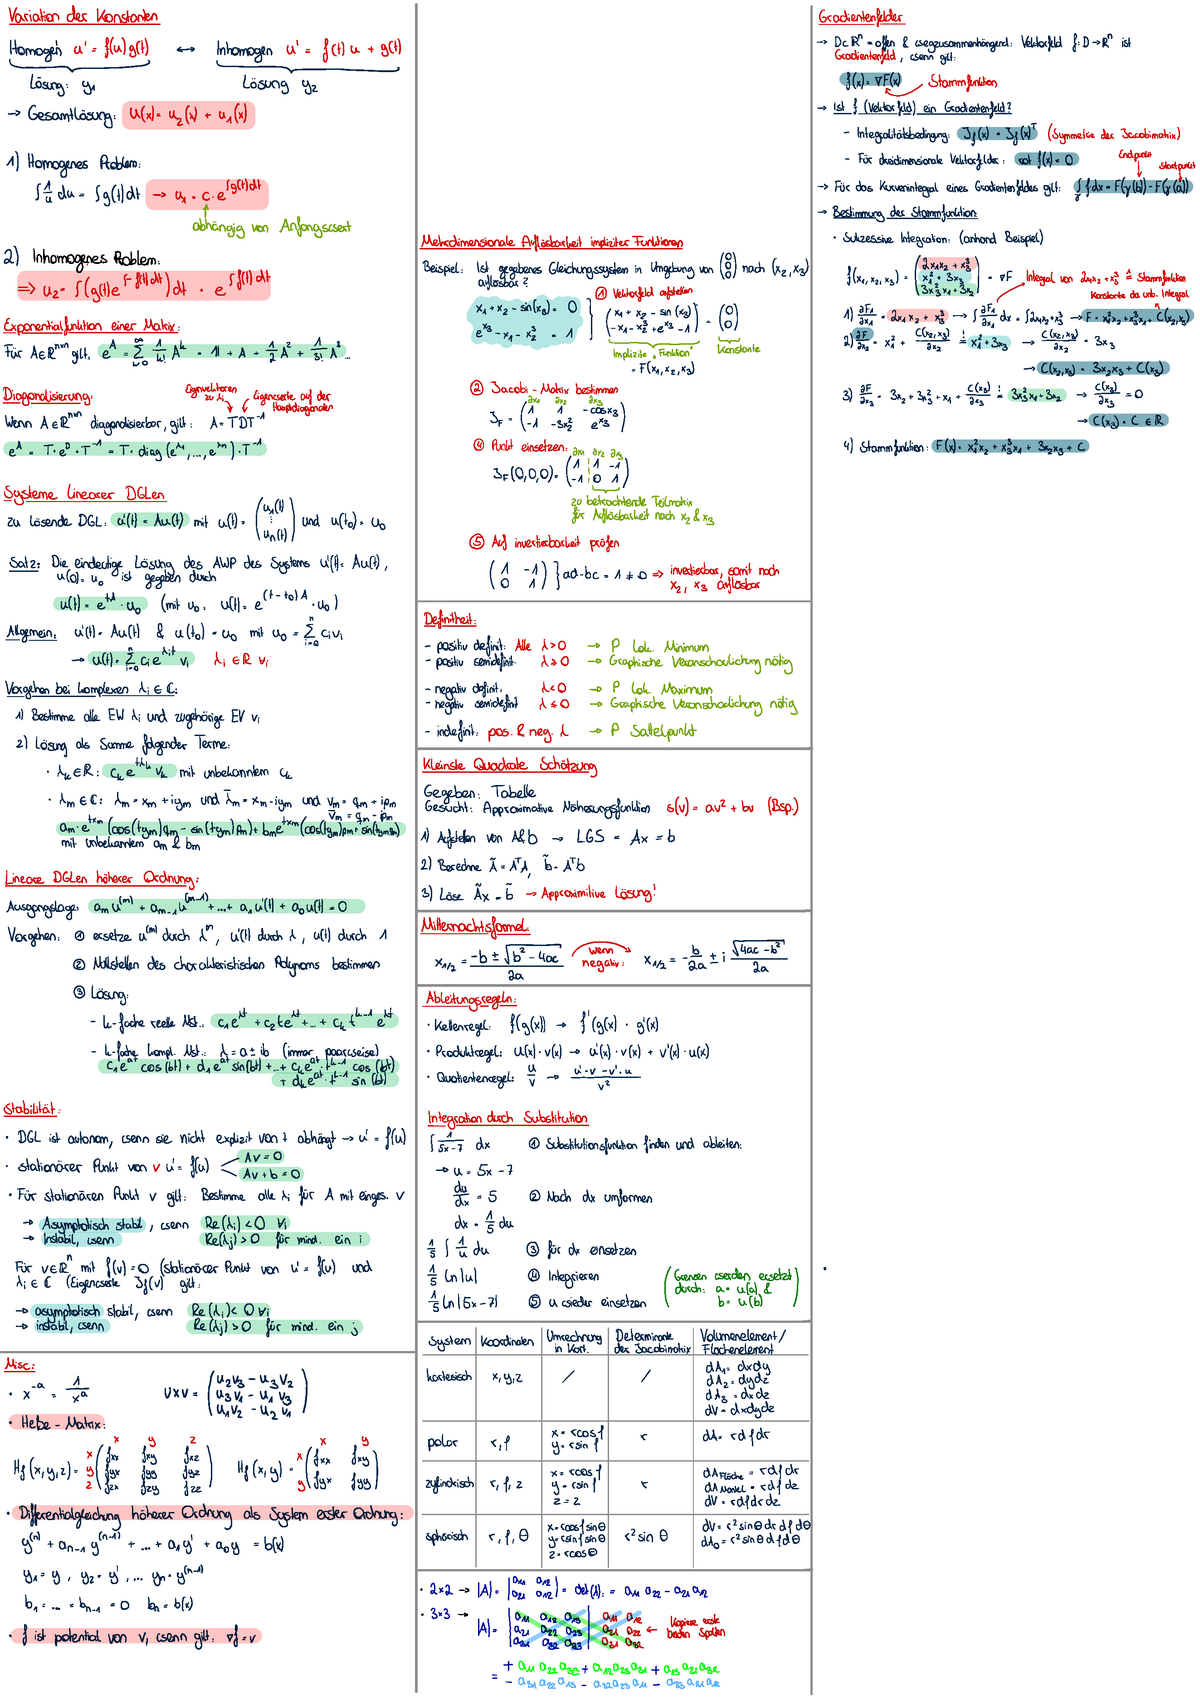 Variation der Konstanten
Homogen u' = f(u) g(t) ↔ Inhomogen u' = f(t) u + g(t)
Lösung: y₁ Lösung y₂
→ Gesamtlösung: u(x) = u₂(x) + u₁(x)
1) Homogenes Problem:
∫ 1/u du = ∫ g(t) dt → u₁ = c · e^∫g(t)dt
abhängig von Anfangswert
2) Inhomogenes Problem:
⇒ u₂ = ∫(g(t) e^∫-f(t)dt) dt · e^∫f(t)dt
Exponentialfunktion einer Matrix:
Für A∈ℝⁿˣⁿ gilt, e^A = Σ 1/k! A^k = 1 + A + 1/2 A² + 1/3! A³...
Diagonalisierung:
Eigenvektoren zu λi
Eigenwerte auf der Hauptdiagonalen
Wenn A∈ℝⁿˣⁿ diagonalisierbar, gilt: A = TDT⁻¹
e^A = T · e^D · T⁻¹ = T · diag(e^λ₁, ..., e^λn) · T⁻¹
Systeme linearer DGLen
zu lösende DGL: u'(t) = Au(t) mit u(t) = (u₁(t) ⋮ uₙ(t)) und u(t₀) = u₀
Satz: Die eindeutige Lösung des AWP des Systems u'(t) = Au(t),
u(0) = u₀ ist gegeben durch
u(t) = e^tA · u₀ (mit u₀: u(t) = e^(t-t₀)A · u₀)
Allgemein: u'(t) = Au(t) & u(t₀) = u₀ mit u₀ = Σ cᵢvᵢ
→ u(t) = Σ cᵢ e^λᵢt vᵢ λᵢ ∈ ℝ ∀i
Vorgehen bei komplexen λᵢ ∈ ℂ:
1) Bestimme alle EW λᵢ und zugehörige EV vᵢ
2) Lösung als Summe folgender Terme:
· λk ∈ ℝ: ck e^tλk vk mit unbekanntem ck
· λm ∈ ℂ: λm = xm + iym und λ̄m = xm - iym und vm = qm + ipm
v̄m = qm - ipm
am · e^txm (cos(tym)qm - sin(tym)pm) + bm e^txm (cos(tym)pm + sin(tym)qm)
mit unbekanntem am & bm
Lineare DGLen höherer Ordnung:
Ausgangslage: am u^(m) + am-1 u^(m-1) + ... + a₁u'(t) + a₀u(t) = 0
Vorgehen: ① ersetze u^(m) durch λ^m, u'(t) durch λ, u(t) durch 1
② Nullstellen des charakteristischen Polynoms bestimmen
③ Lösung:
- k-fache reelle Nst.: c₁e^λt + c₂te^λt + ... + ck t^k-1 e^λt
- k-fache kompl. Nst.: λ = a ± ib (immer paarweise)
c₁e^at cos(bt) + d₁e^at sin(bt) + ... + ck e^at · t^k-1 cos(bt)
+ dk e^at · t^k-1 sin(bt)
Stabilität:
· DGL ist autonom, wenn sie nicht explizit von t abhängt → u' = f(u)
· stationärer Punkt von v u' = f(u) Av = 0
Av + b = 0
· Für stationären Punkt v gilt: Bestimme alle λᵢ für A mit einges. v
→ Asymptotisch stabil, wenn Re(λᵢ) < 0 ∀i
→ Instabil, wenn Re(λj) > 0 für mind. ein i
Für v∈ℝⁿ mit f(v) = 0 (stationärer Punkt von u' = f(u) und
λᵢ ∈ ℂ (Eigenwerte Jf(v) gilt:
→ asymptotisch stabil, wenn Re(λᵢ) < 0 ∀i
→ instabil, wenn Re(λj) > 0 für mind. ein j
Misc:
· x⁻ᵃ = 1/xᵃ u×v = (u₂v₃ - u₃v₂ u₃v₁ - u₁v₃ u₁v₂ - u₂v₁)
· Heße-Matrix:
x y z x y
Hf(x,y,z) = x (fxx fxy fxz Hf(x,y) = x (fxx fxy
y fyx fyy fyz y fyx fyy)
z fzx fzy fzz)
· Differentialgleichung höherer Ordnung als System erster Ordnung:
y^(n) + an-1 y^(n-1) + ... + a₁y' + a₀y = b(x)
y₁ = y, y₂ = y', ... yn = y^(n-1)
b₁ = ... = bn-1 = 0 bn = b(x)
· f ist potential von v, wenn gilt: ∇f = v
Mehrdimensionale Auflösbarkeit impliziter Funktionen
Beispiel: Ist gegebenes Gleichungssystem in Umgebung von (0 0 0) nach (x₂, x₃)
auflösbar?
① Vektorfeld aufstellen
x₁ + x₂ - sin(x₃) = 0 (x₁ + x₂ - sin(x₃) = (0
e^x₃ - x₁ - x₂³ = 1 -x₁ - x₂³ + e^x₃ - 1) 0)
Implizite "Funktion" Konstante
= F(x₁, x₂, x₃)
② Jacobi-Matrix bestimmen
∂x₁ ∂x₂ ∂x₃
JF = (1 1 -cosx₃
-1 -3x₂² e^x₃)
④ Punkt einsetzen:
∂x₁ ∂x₂ ∂x₃
JF(0,0,0) = (1 1 -1
-1 0 1)
zu betrachtende Teilmatrix
für Auflösbarkeit nach x₂ & x₃
⑤ Auf invertierbarkeit prüfen
(1 -1 0 1) } ad-bc = 1 ≠ 0 ⇒ invertierbar, somit nach
x₂, x₃ auflösbar
Definitheit:
- positiv definit: Alle λ > 0 → P lok. Minimum
- positiv semidefinit λ ≥ 0 → Graphische Veranschaulichung nötig
- negativ definit: λ < 0 → P lok. Maximum
- negativ semidefinit λ ≤ 0 → Graphische Veranschaulichung nötig
- indefinit: pos. & neg. λ → P Sattelpunkt
Kleinste Quadrate Schätzung
Gegeben: Tabelle
Gesucht: Approximative Näherungsfunktion s(v) = av² + bv (Bsp.)
1) Aufstellen von A&b → LGS = Ax = b
2) Berechne Ã = AᵀA, b̃ = Aᵀb
3) Löse Ãx = b̃ → Approximitive Lösung!
Mitternachtsformel:
x₁/₂ = (-b ± √(b² - 4ac))/2a wenn negativ: x₁/₂ = -b/2a ± i √(4ac - b²)/2a
Ableitungsregeln:
· Kettenregel: f(g(x)) → f'(g(x) · g'(x)
· Produktregel: u(x) · v(x) → u'(x) · v(x) + v'(x) · u(x)
· Quotientenregel: u/v → (u'·v - v'·u)/v²
Integration durch Substitution
∫ 1/(5x-7) dx ① Substitutionsfunktion finden und ableiten:
→ u = 5x - 7
du/dx = 5 ② Nach dx umformen
dx = 1/5 du
1/5 ∫ 1/u du ③ für dx einsetzen
1/5 ln|u| ④ Integrieren
1/5 ln|5x-7| ⑤ u wieder einsetzen
(Grenzen werden ersetzt
durch: a = u(a) &
b = u(b))
System Koordinaten Umrechnung in Kart. Determinante der Jacobimatrix Volumenelement/ Flächenelement
kartesisch x,y,z / / dA₁ = dxdy
dA₂ = dydz
dA₃ = dxdz
dV = dxdydz
polar r, φ x = rcosφ y = rsinφ r dA = rdφdr
zylindrisch r, φ, z x = rcosφ y = rsinφ z = z r dA Fläche = rdφdr
dA Mantel = rdφdz
dV = rdφdrdz
sphärisch r, φ, θ x = rcosφsinθ y = rsinφsinθ z = rcosθ r² sin θ dV = r²sinθdrdφdθ
dA₀ = r²sinθdφdθ
· 2×2 → |A| = |a₁₁ a₁₂ a₂₁ a₂₂| = det(A) = a₁₁a₂₂ - a₂₁a₁₂
· 3×3 →
|A| = |a₁₁ a₁₂ a₁₃| a₁₁ a₁₂
a₂₁ a₂₂ a₂₃ a₂₁ a₂₂ ← Kopiere erste beiden Spalten
a₃₁ a₃₂ a₃₃ a₃₁ a₃₂
= + a₁₁a₂₂a₃₃ + a₁₂a₂₃a₃₁ + a₁₃a₂₁a₃₂
- a₃₁a₂₂a₁₃ - a₃₂a₂₃a₁₁ - a₃₃a₂₁a₁₂
Gradientenfelder
→ D⊂ℝⁿ = offen & wegzusammenhängend: Vektorfeld f: D→ℝⁿ ist
Gradientenfeld, wenn gilt:
f(x) = ∇F(x) Stammfunktion
→ Ist f (Vektorfeld) ein Gradientenfeld?
- Integralitätsbedingung: Jf(x) = Jf(x)ᵀ (Symmetrie der Jacobimatrix)
- Für dreidimensionale Vektorfelder: rot f(x) = 0
Endpunkt Startpunkt
→ Für das Kurvenintegral eines Gradientenfeldes gilt: ∫ f dx = F(γ(b)) - F(γ(a))
→ Bestimmung der Stammfunktion:
· Sukzessive Integration: (anhand Beispiel)
f(x₁, x₂, x₃) = (2x₁x₂ + x₃³ x₁² + 3x₃ 3x₃²x₁ + 3x₂) = ∇F
Integral von 2x₁x₂ + x₃³ ≙ Stammfunktion
Konstante da unb. Integral
1) ∂F₁/∂x₁ = 2x₁x₂ + x₃³ → ∫ ∂F₁/∂x₁ dx = ∫2x₁x₂ + x₃³ → F = x₁²x₂ + x₃³x₁ + C(x₂, x₃)
2) ∂F/∂x₂ = x₁² + C(x₂, x₃)/∂x₂ = x₁² + 3x₃ → C(x₂, x₃)/∂x₂ = 3x₃
→ C(x₂, x₃) = 3x₂x₃ + C(x₃)
3) ∂F/∂x₃ = 3x₂ + 3x₃² + x₁ + C(x₃)/∂x₃ = 3x₃²x₁ + 3x₂ → C(x₃)/∂x₃ = 0
→ C(x₃) = C ∈ ℝ
4) Stammfunktion: F(x) = x₁²x₂ + x₃³x₁ + 3x₂x₃ + C